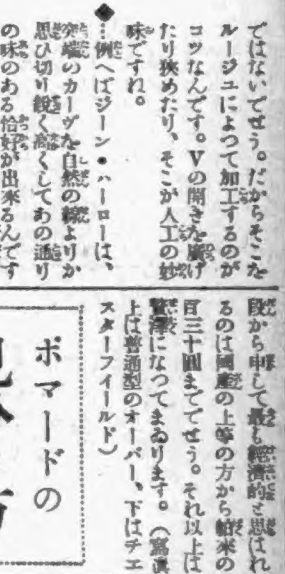 ではないでせう。だからそこを
ルージユによつて加工するのが
コツなんです。Vの開きを廣げ
たり狹めたり、そこが人工の妙
味ですね。
◆…例へばジーン・ハーローは、
突端のカーヴを自然の線よりか
思ひ切り鋭く高くしてあの通り
の味のある恰好が出來るんです
段から申して最も經濟的と思はれ
るのは國產の上等の方から舶來の
百三十圓まででせう。それ以上は
贅澤になつてまゐります。(寫眞
上は普通型のオーバー、下はチエ
スターフイールド)
ポマードの